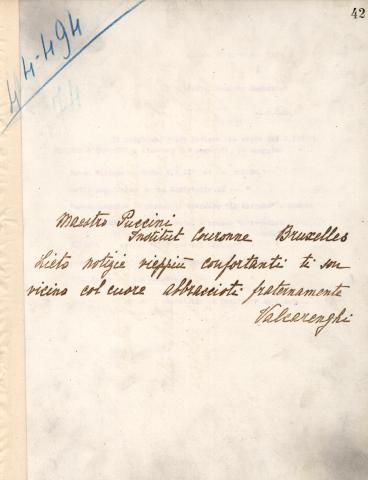 42
44.494
Maestro Puccini
Institut Couronne Bruxelles
Lieto notizie vieppiù confortanti ti son
vicino col cuore abbraccioti fraternamente
Valcarenghi